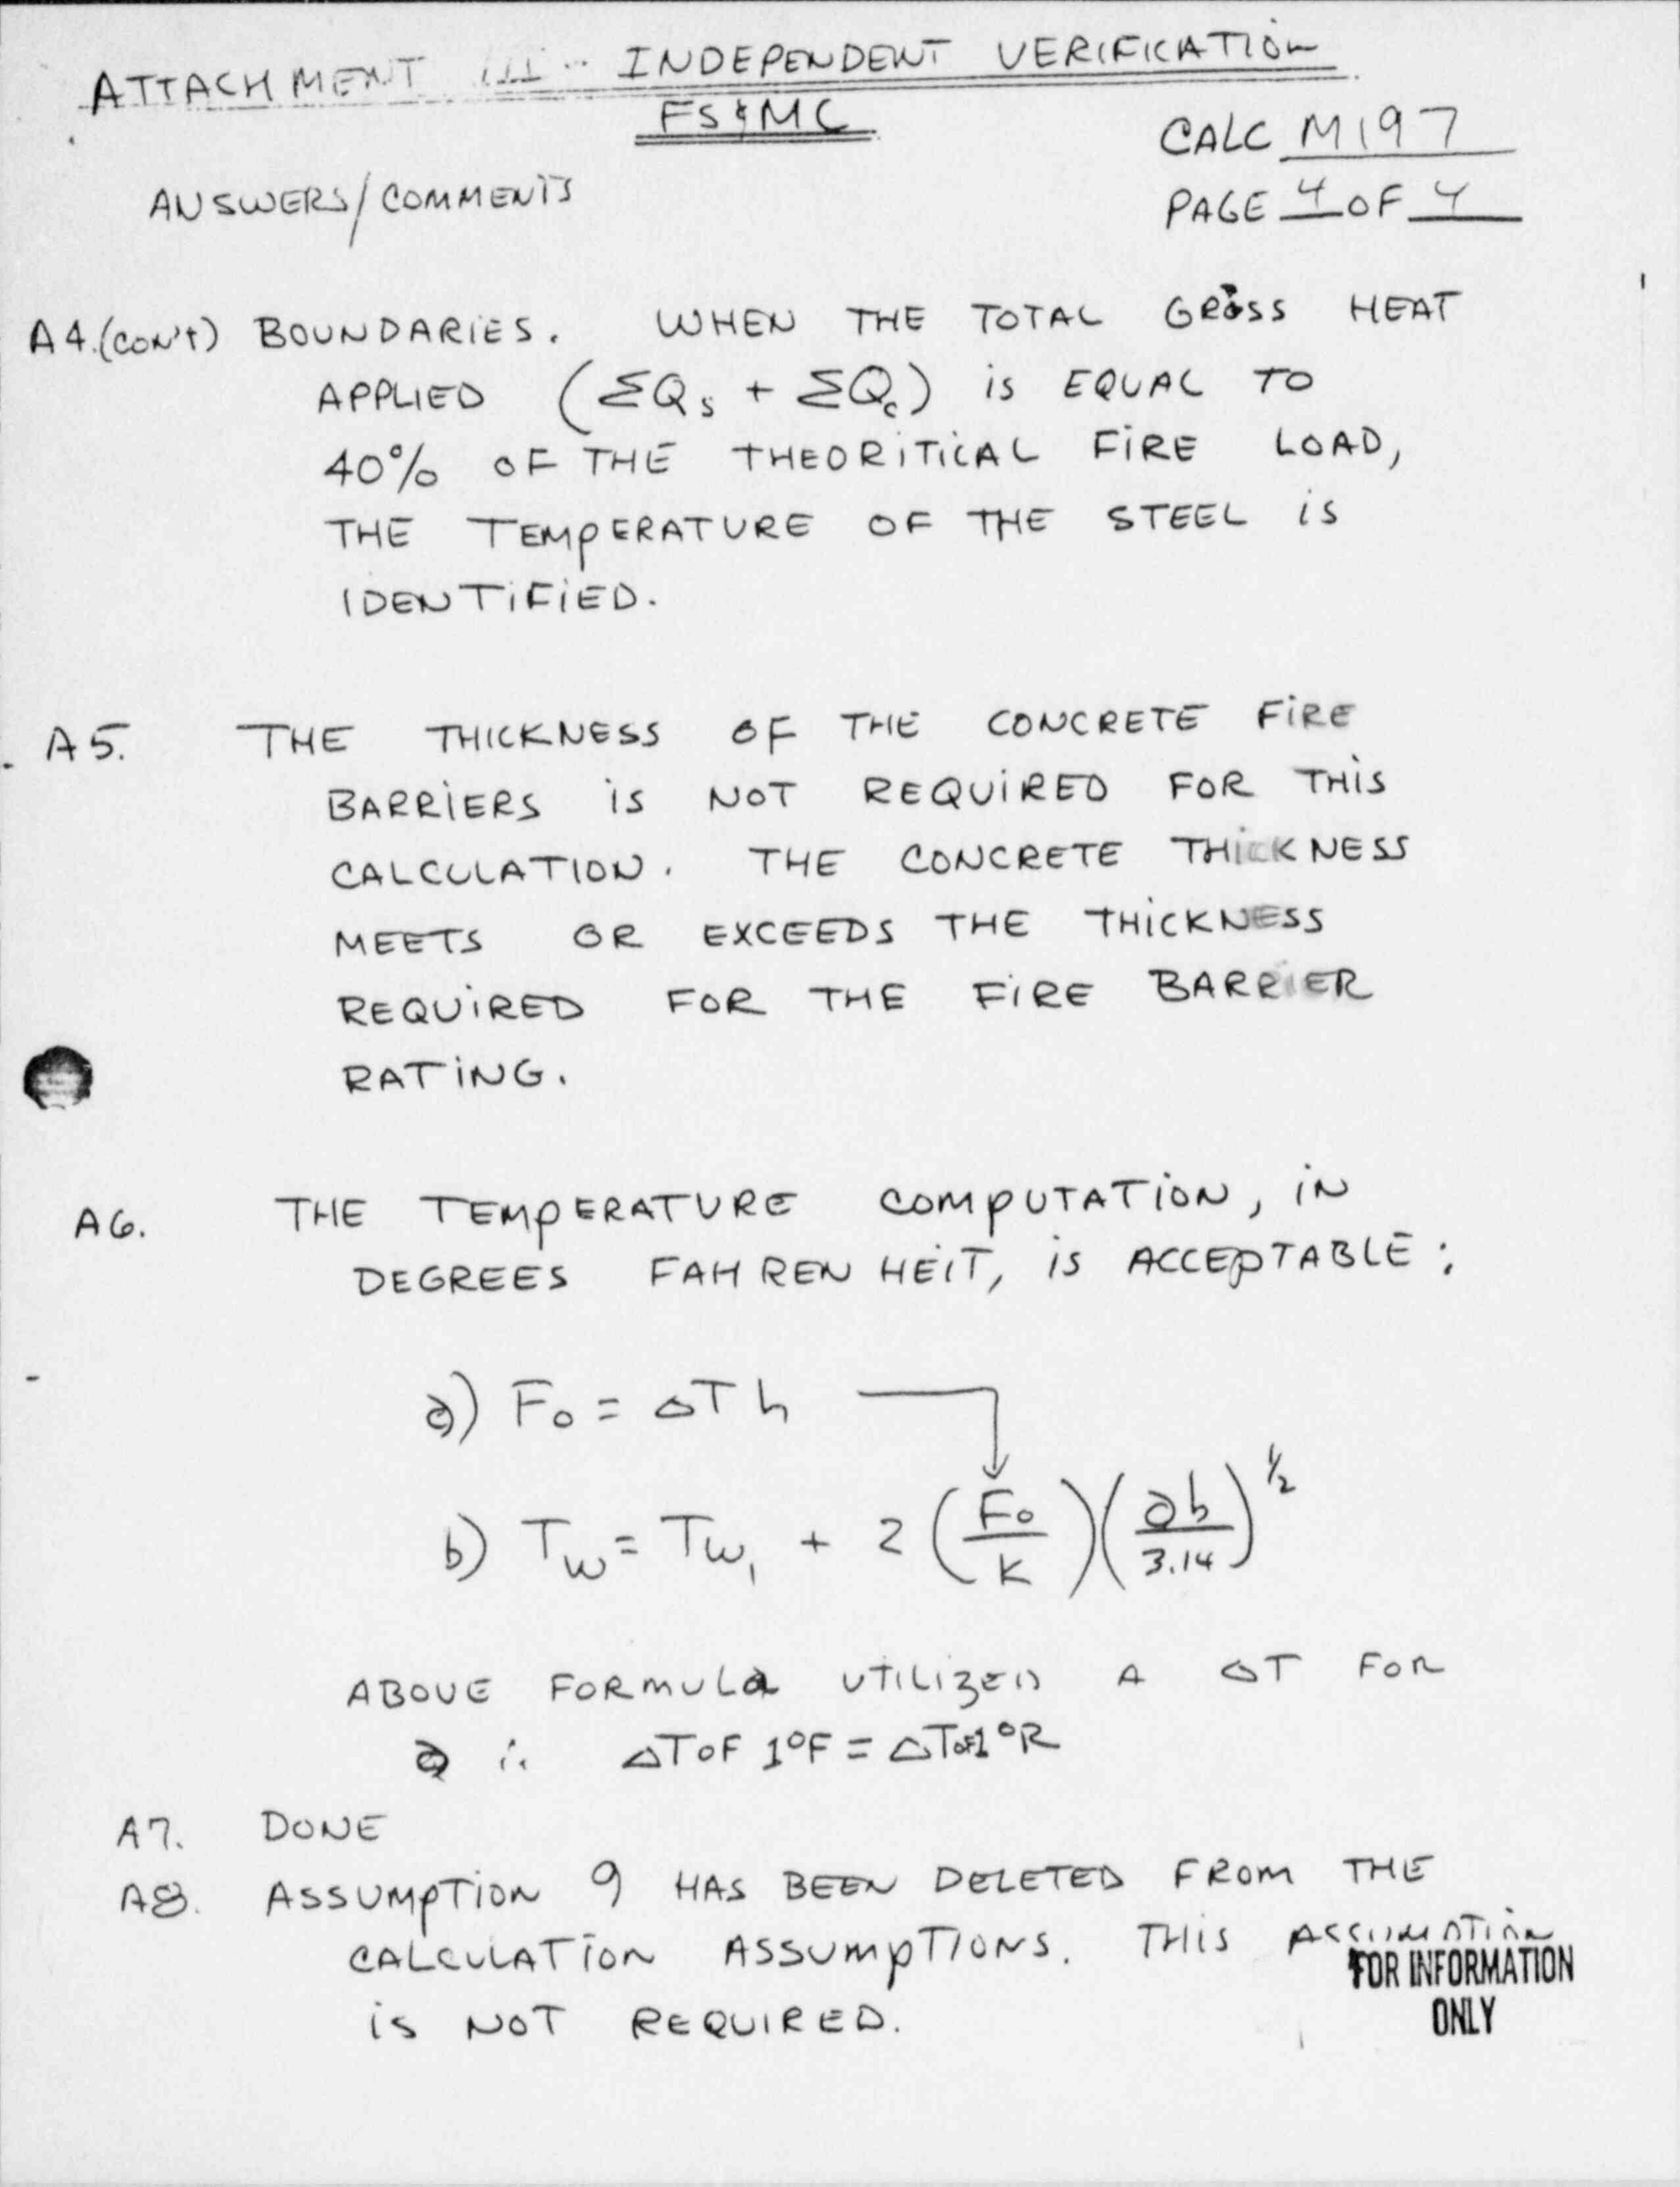 ATTACHMENT III - INDEPENDENT VERIFICATION
FS&MC
CALC M197
PAGE 4 OF 4
ANSWERS/COMMENTS
A4.(CON'T) BOUNDARIES. WHEN THE TOTAL GROSS HEAT
APPLIED (ΣQs + ΣQc) is EQUAL TO
40% OF THE THEORITICAL FIRE LOAD,
THE TEMPERATURE OF THE STEEL is
IDENTIFIED.
A5. THE THICKNESS OF THE CONCRETE FIRE
BARRIERS is NOT REQUIRED FOR THIS
CALCULATION. THE CONCRETE THICKNESS
MEETS OR EXCEEDS THE THICKNESS
REQUIRED FOR THE FIRE BARRIER
RATING.
A6. THE TEMPERATURE COMPUTATION, IN
DEGREES FAHRENHEIT, is ACCEPTABLE:
a) Fo = ΔT h
b) Tw = Tw1 + 2 (Fo/K)(ab/3.14)^1/2
ABOVE FORMULA UTILIZED A ΔT FOR
a ∴ ΔT OF 1°F = ΔT OF 1°R
A7. DONE
A8. ASSUMPTION 9 HAS BEEN DELETED FROM THE
CALCULATION ASSUMPTIONS. THIS ASSUMPTION
is NOT REQUIRED.
FOR INFORMATION
ONLY